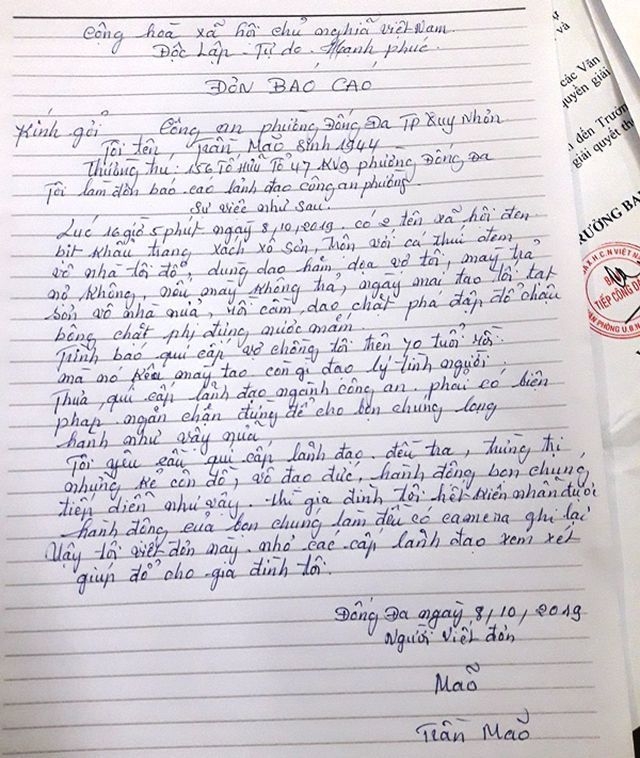 Cộng hoà xã hôi chủ nghĩa việt Nam.
Độc Lập - Tự do - Hạnh phúc.
ĐỎN BÁO CÁO
Kính gởi Công an phường Đống Đa TP Quy Nhỏn
Tôi tên: Trần Mão Sinh 1944
Thường trú: 156 Tố Hữu Tổ 47 KV9 phường Đống Đa
Tôi làm đỏn báo cáo lãnh đạo công an phường.
Sự việc như sau.
Lúc 16 giờ 5 phút ngày 8, 10, 2019 có 2 tên xã hôi đen
bịt khẩu trang xách xô sỏn, trôn với cá thúi đem
vô nhà tôi đổ, dùng dao hăm dọa vỏ tôi, mày trả
nỏ không, nếu mày không trả, ngày mai tao lôi tạt
sỏn vô nhà nữa, rồi cầm dao chặt phá đập đổ chậu
bông chặt phị đưng nước mắm.
Trình báo quí cấp vỏ chồng tôi trên 70 tuổi rồi
mà nó kêu mày tao còn gì đạo lý tình người
Thưa, quí cấp lãnh đạo ngành công an phải có biện
pháp ngăn chặn đừng để cho bọn chúng long
hành như vậy nữa,
Tôi yêu cầu quí cấp lãnh đạo điều tra, trừng trị
những kẻ côn đồ, vô đạo đức, hành động bọn chúng
tiếp diễn như vậy. thì gia đình tôi hết kiên nhẫn được
hành động của bọn chúng làm đều có camera ghi lại
Vậy tôi viết đỏn này nhỏ các cấp lãnh đạo xem xét
giúp đổ cho gia đình tôi.
Đống Đa ngày 8, 10, 2019
Người viết đỏn
Mão
Trần Mão
các Văn
quyền giải
đến Trưởn
giải quyết th
RƯỞNG BA
TIẾP CÔNG DÂ